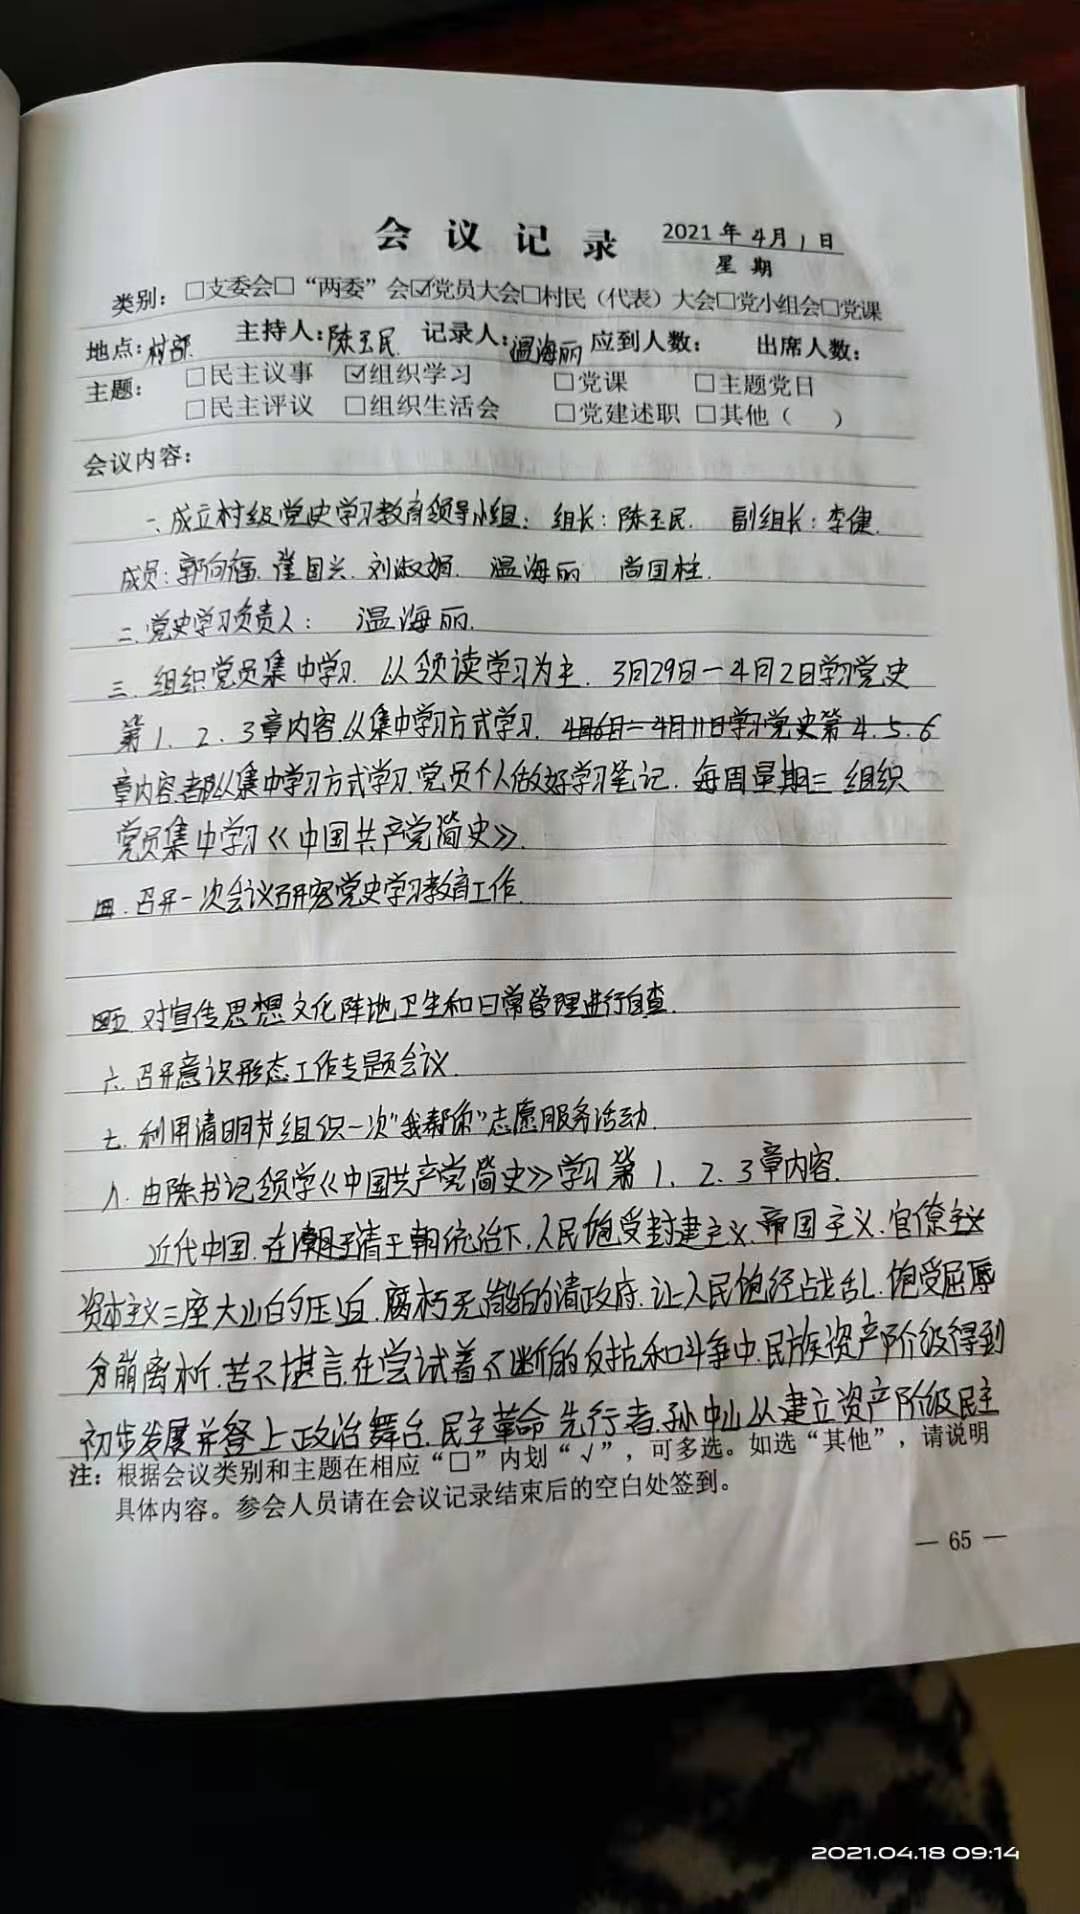 会议记录 2021年4月1日
星期
类别：□支委会□“两委”会☑党员大会□村民（代表）大会□党小组会□党课
地点：村部 主持人：陈玉民 记录人：温海丽 应到人数： 出席人数：
主题： □民主议事 ☑组织学习 □党课 □主题党日
□民主评议 □组织生活会 □党建述职 □其他（ ）
会议内容：
一、成立村级党史学习教育领导小组：组长：陈玉民. 副组长：李健.
成员：郭向福. 崔国兴. 刘淑娟. 温海丽 尚国柱.
二.党史学习负责人： 温海丽.
三. 组织党员集中学习. 以领读学习为主. 3月29日－4月2日学习党史
第1、2、3章内容.以集中学习方式学习. 4月6日－4月11日学习党史第4.5.6
章内容.都以集中学习方式学习.党员个人做好学习笔记. 每周星期三 组织
党员集中学习《中国共产党简史》.
四.召开一次会议研究党史学习教育工作.
五.对宣传思想文化阵地卫生和日常管理进行自查.
六.召开意识形态工作专题会议.
七.利用清明节组织一次“我帮你”志愿服务活动.
八.由陈书记领学《中国共产党简史》学习第1、2、3章内容.
近代中国.在清王朝统治下.人民饱受封建主义.帝国主义.官僚主义
资本主义三座大山的压迫.腐朽无能的清政府.让人民饱经战乱.饱受屈辱
分崩离析.苦不堪言.在尝试着不断的反抗和斗争中.民族资产阶级得到
初步发展并登上政治舞台.民主革命先行者.孙中山从建立资产阶级民主
注：根据会议类别和主题在相应“□”内划“√”，可多选。如选“其他”，请说明
具体内容。参会人员请在会议记录结束后的空白处签到。
— 65 —
2021.04.18 09:14